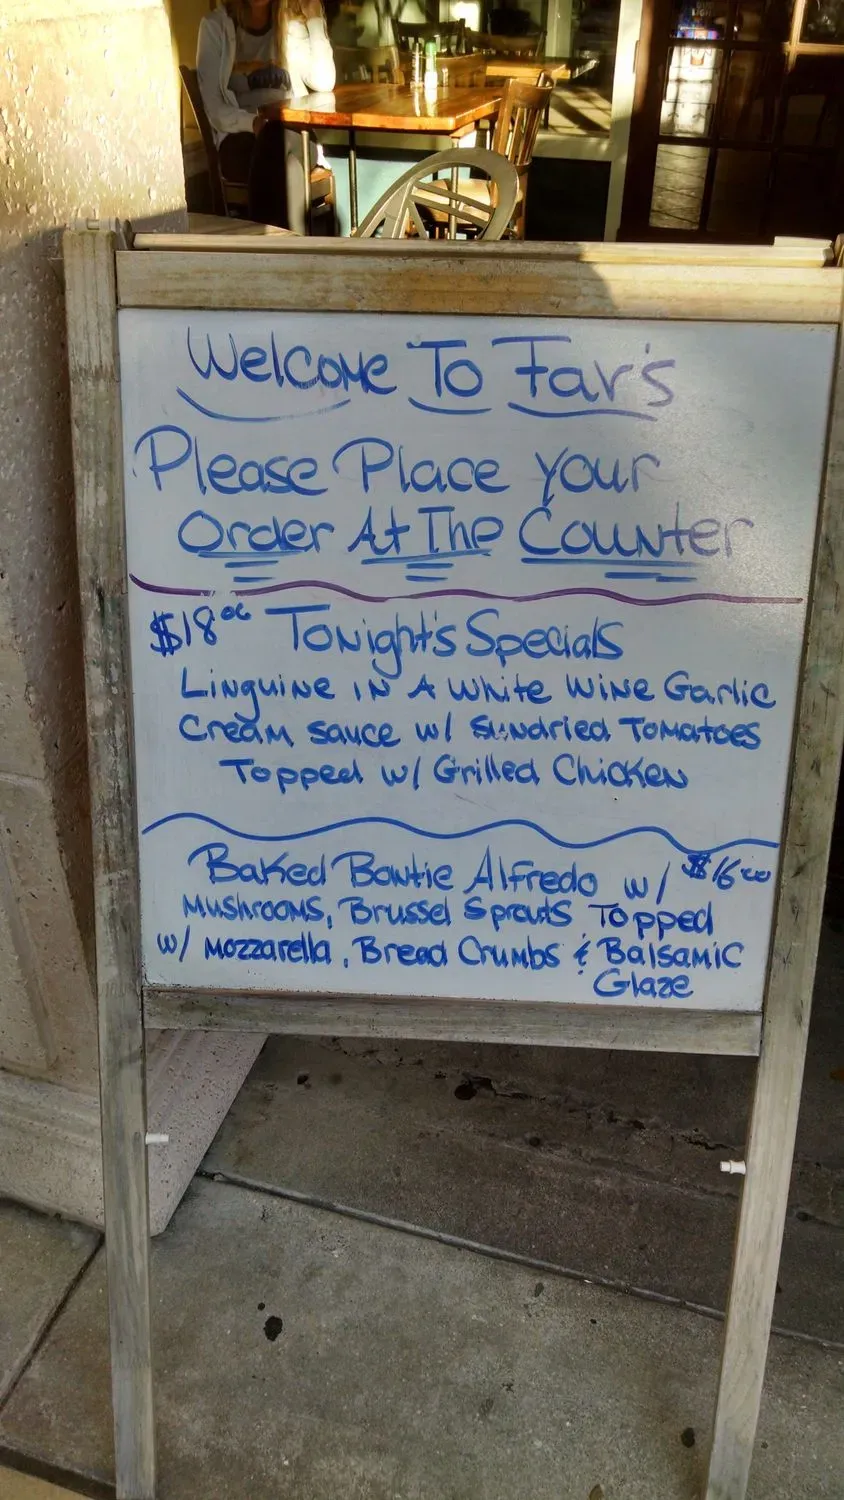 Welcome To Fav's
Please Place your
Order At The Counter
$18.00 Tonight's Specials
Linguine in A White Wine Garlic
Cream sauce w/ Sundried Tomatoes
Topped w/ Grilled Chicken
Baked Bowtie Alfredo w/ $16.00
Mushrooms, Brussel Sprouts Topped
w/ Mozzarella, Bread Crumbs & Balsamic
Glaze